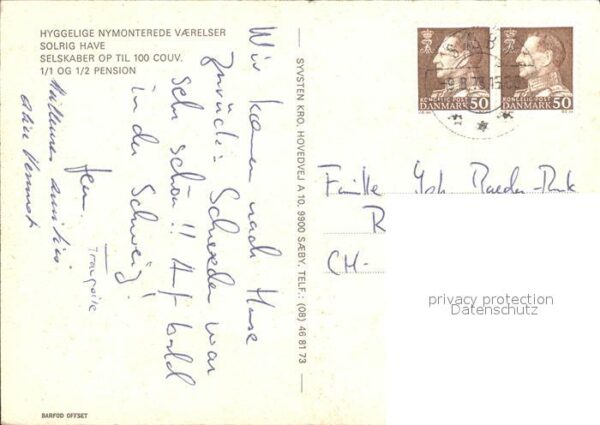 HYGGELIGE NYMONTEREDE VÆRELSER
SOLRIG HAVE
SELSKABER OP TIL 100 COUV.
1/1 OG 1/2 PENSION
Wir kamen nach Hause
zurück: Schweden war
sehr schön!! Auf bald
in der Schweiz!
Françoise
SYVSTEN KRO, HOVEDVEJ A 10, 9900 SÆBY, TELF.: (08) 46 81 73
BARFOD OFFSET
SÆBY
KONGELIG POST
DANMARK 50
KONGELIG POST
DANMARK 50
Familie
R
CH-
privacy protection
Datenschutz